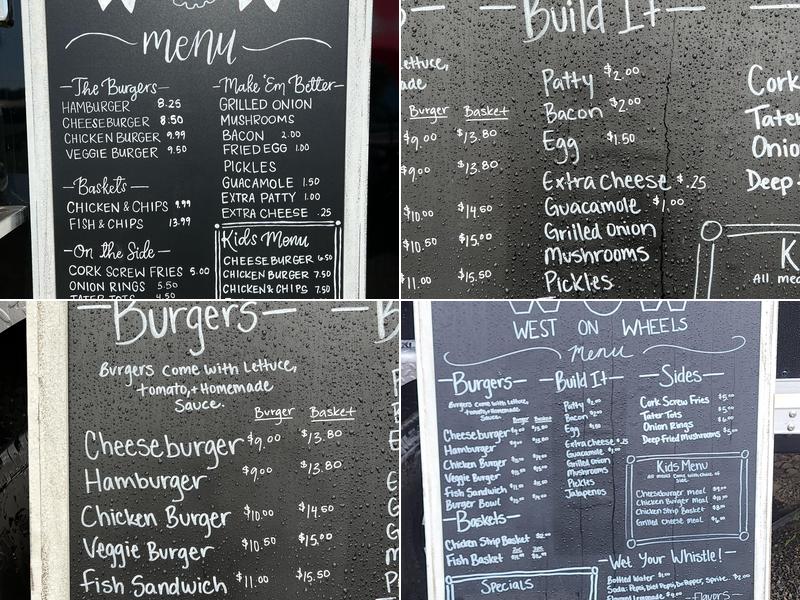 menu
The Burgers
HAMBURGER 8.25
CHEESEBURGER 8.50
CHICKEN BURGER 9.99
VEGGIE BURGER 9.50
Baskets
CHICKEN & CHIPS 9.99
FISH & CHIPS 13.99
On the Side
CORK SCREW FRIES 5.00
ONION RINGS 5.50
TATER TOTS 4.50
Make 'Em Better
GRILLED ONION
MUSHROOMS
BACON 2.00
FRIED EGG 1.00
PICKLES
GUACAMOLE 1.50
EXTRA PATTY 1.00
EXTRA CHEESE .25
Kids Menu
CHEESEBURGER 6.50
CHICKEN BURGER 7.50
CHICKEN & CHIPS 7.50
Build It
ettuce,
ade
Burger Basket
$9.00 $13.80
$9.00 $13.80
$10.00 $14.50
$10.50 $15.00
$11.00 $15.50
Patty $2.00
Bacon $2.00
Egg $1.50
Extra Cheese $.25
Guacamole $1.00
Grilled Onion
Mushrooms
Pickles
Cork
Tater
Onio
Deep
K
All mea
Burgers
Burgers come with Lettuce,
tomato, + Homemade
Sauce.
Burger Basket
Cheeseburger $9.00 $13.80
Hamburger $9.00 $13.80
Chicken Burger $10.00 $14.50
Veggie Burger $10.50 $15.00
Fish Sandwich $11.00 $15.50
WOW
WEST ON WHEELS
Menu
Burgers
Burgers come with Lettuce,
tomato, + Homemade
Sauce.
Burger Basket
Cheeseburger $9.00 $13.80
Hamburger $9.00 $13.80
Chicken Burger $10.00 $14.50
Veggie Burger $10.50 $15.00
Fish Sandwich $11.00 $15.50
Burger Bowl
Baskets
Chicken Strip Basket
Fish Basket
Specials
Build It
Patty $2.00
Bacon $2.00
Egg $1.50
Extra Cheese $.25
Guacamole $1.00
Grilled Onion
Mushrooms
Pickles
Jalapenos
Sides
Cork Screw Fries $5.00
Tater Tots
Onion Rings
Deep Fried Mushrooms
Kids Menu
All meals come with choice of
side
Cheeseburger meal
Chicken Burger meal
Chicken Strip Basket
Grilled Cheese meal
Wet Your Whistle!
Bottled Water
Soda: Pepsi, Diet Pepsi, Dr Pepper, Sprite $2.00
Flavors